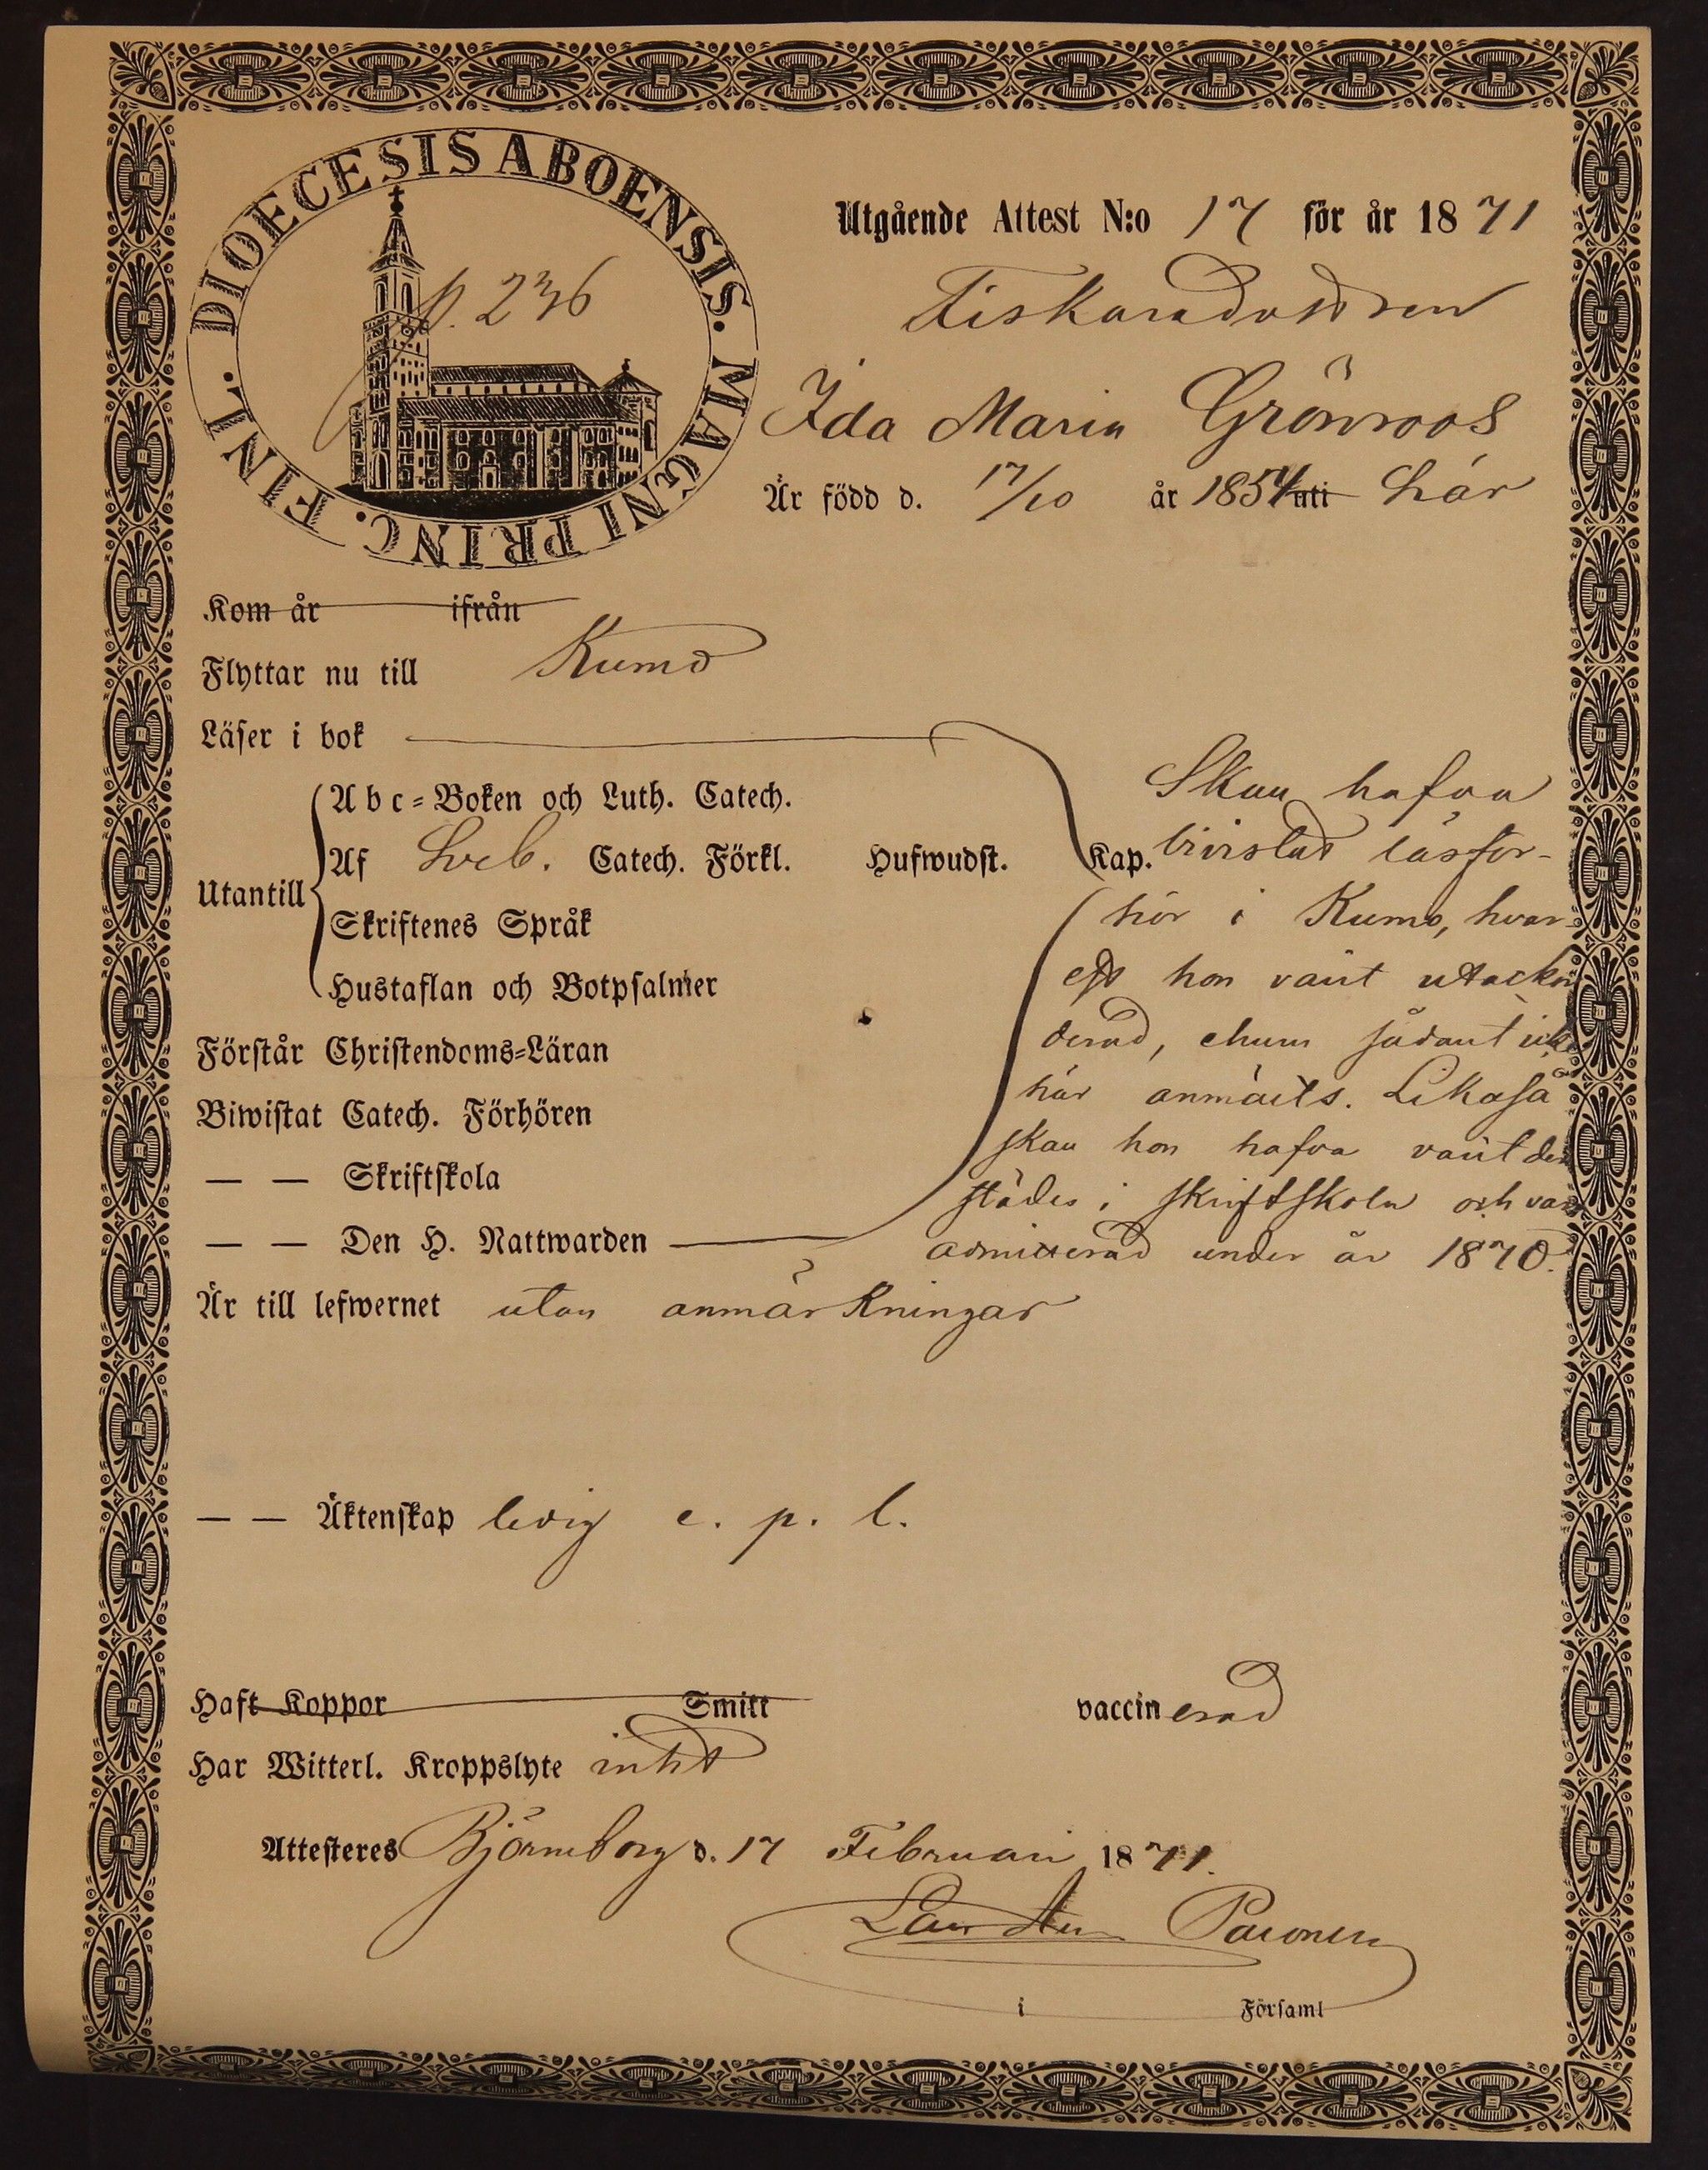 DIOECESIS ABOENSIS. MAGNI PRINC. FINL.
p. 236
Utgående Attest N:o 17 för år 1871
Fiskaredottren
Ida Maria Grönroos
Är född d. 17/10 år 1854 uti här
Kom år ifrån
Flyttar nu till Kumo
Läser i bok
Utantill
Abc-Boken och Luth. Catech.
Af Sveb. Catech. Förkl. Hufwudst. Kap.
Skriftenes Språk
Hustaflan och Botpsalmer
Förstår Christendoms-Läran
Biwistat Catech. Förhören
— — Skriftskola
— — Den H. Nattwarden
Skall hafva
bivistat läsför-
hör i Kumo, hvar-
est hon varit
derad, ehuru sådant icke
här anmälts. Likaså
skall hon hafva varit der
städes i skriftskola och
admitterad under år 1870.
Är till lefwernet utan anmärkningar
— — Äktenskap ledig e. p. l.
Haft Koppor Smitt vaccinerad
Har Witterl. Kroppslyte intet
Attesteres Björneborg d. 17 Februari 1871.
Paronen
i Församl